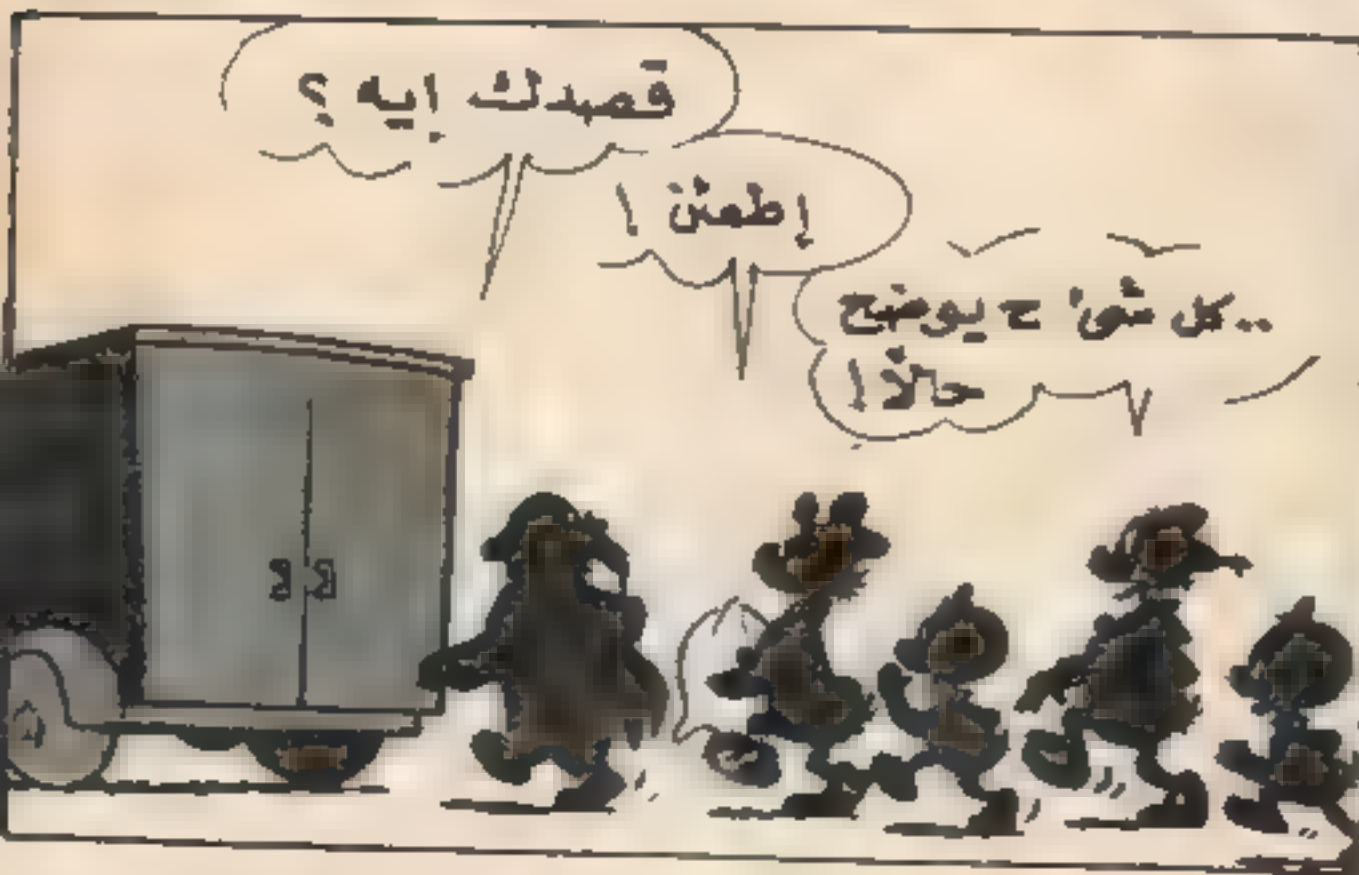 قصدك إيه ؟
إطمئن !
..كل شئ ح يوضح
حالاً !